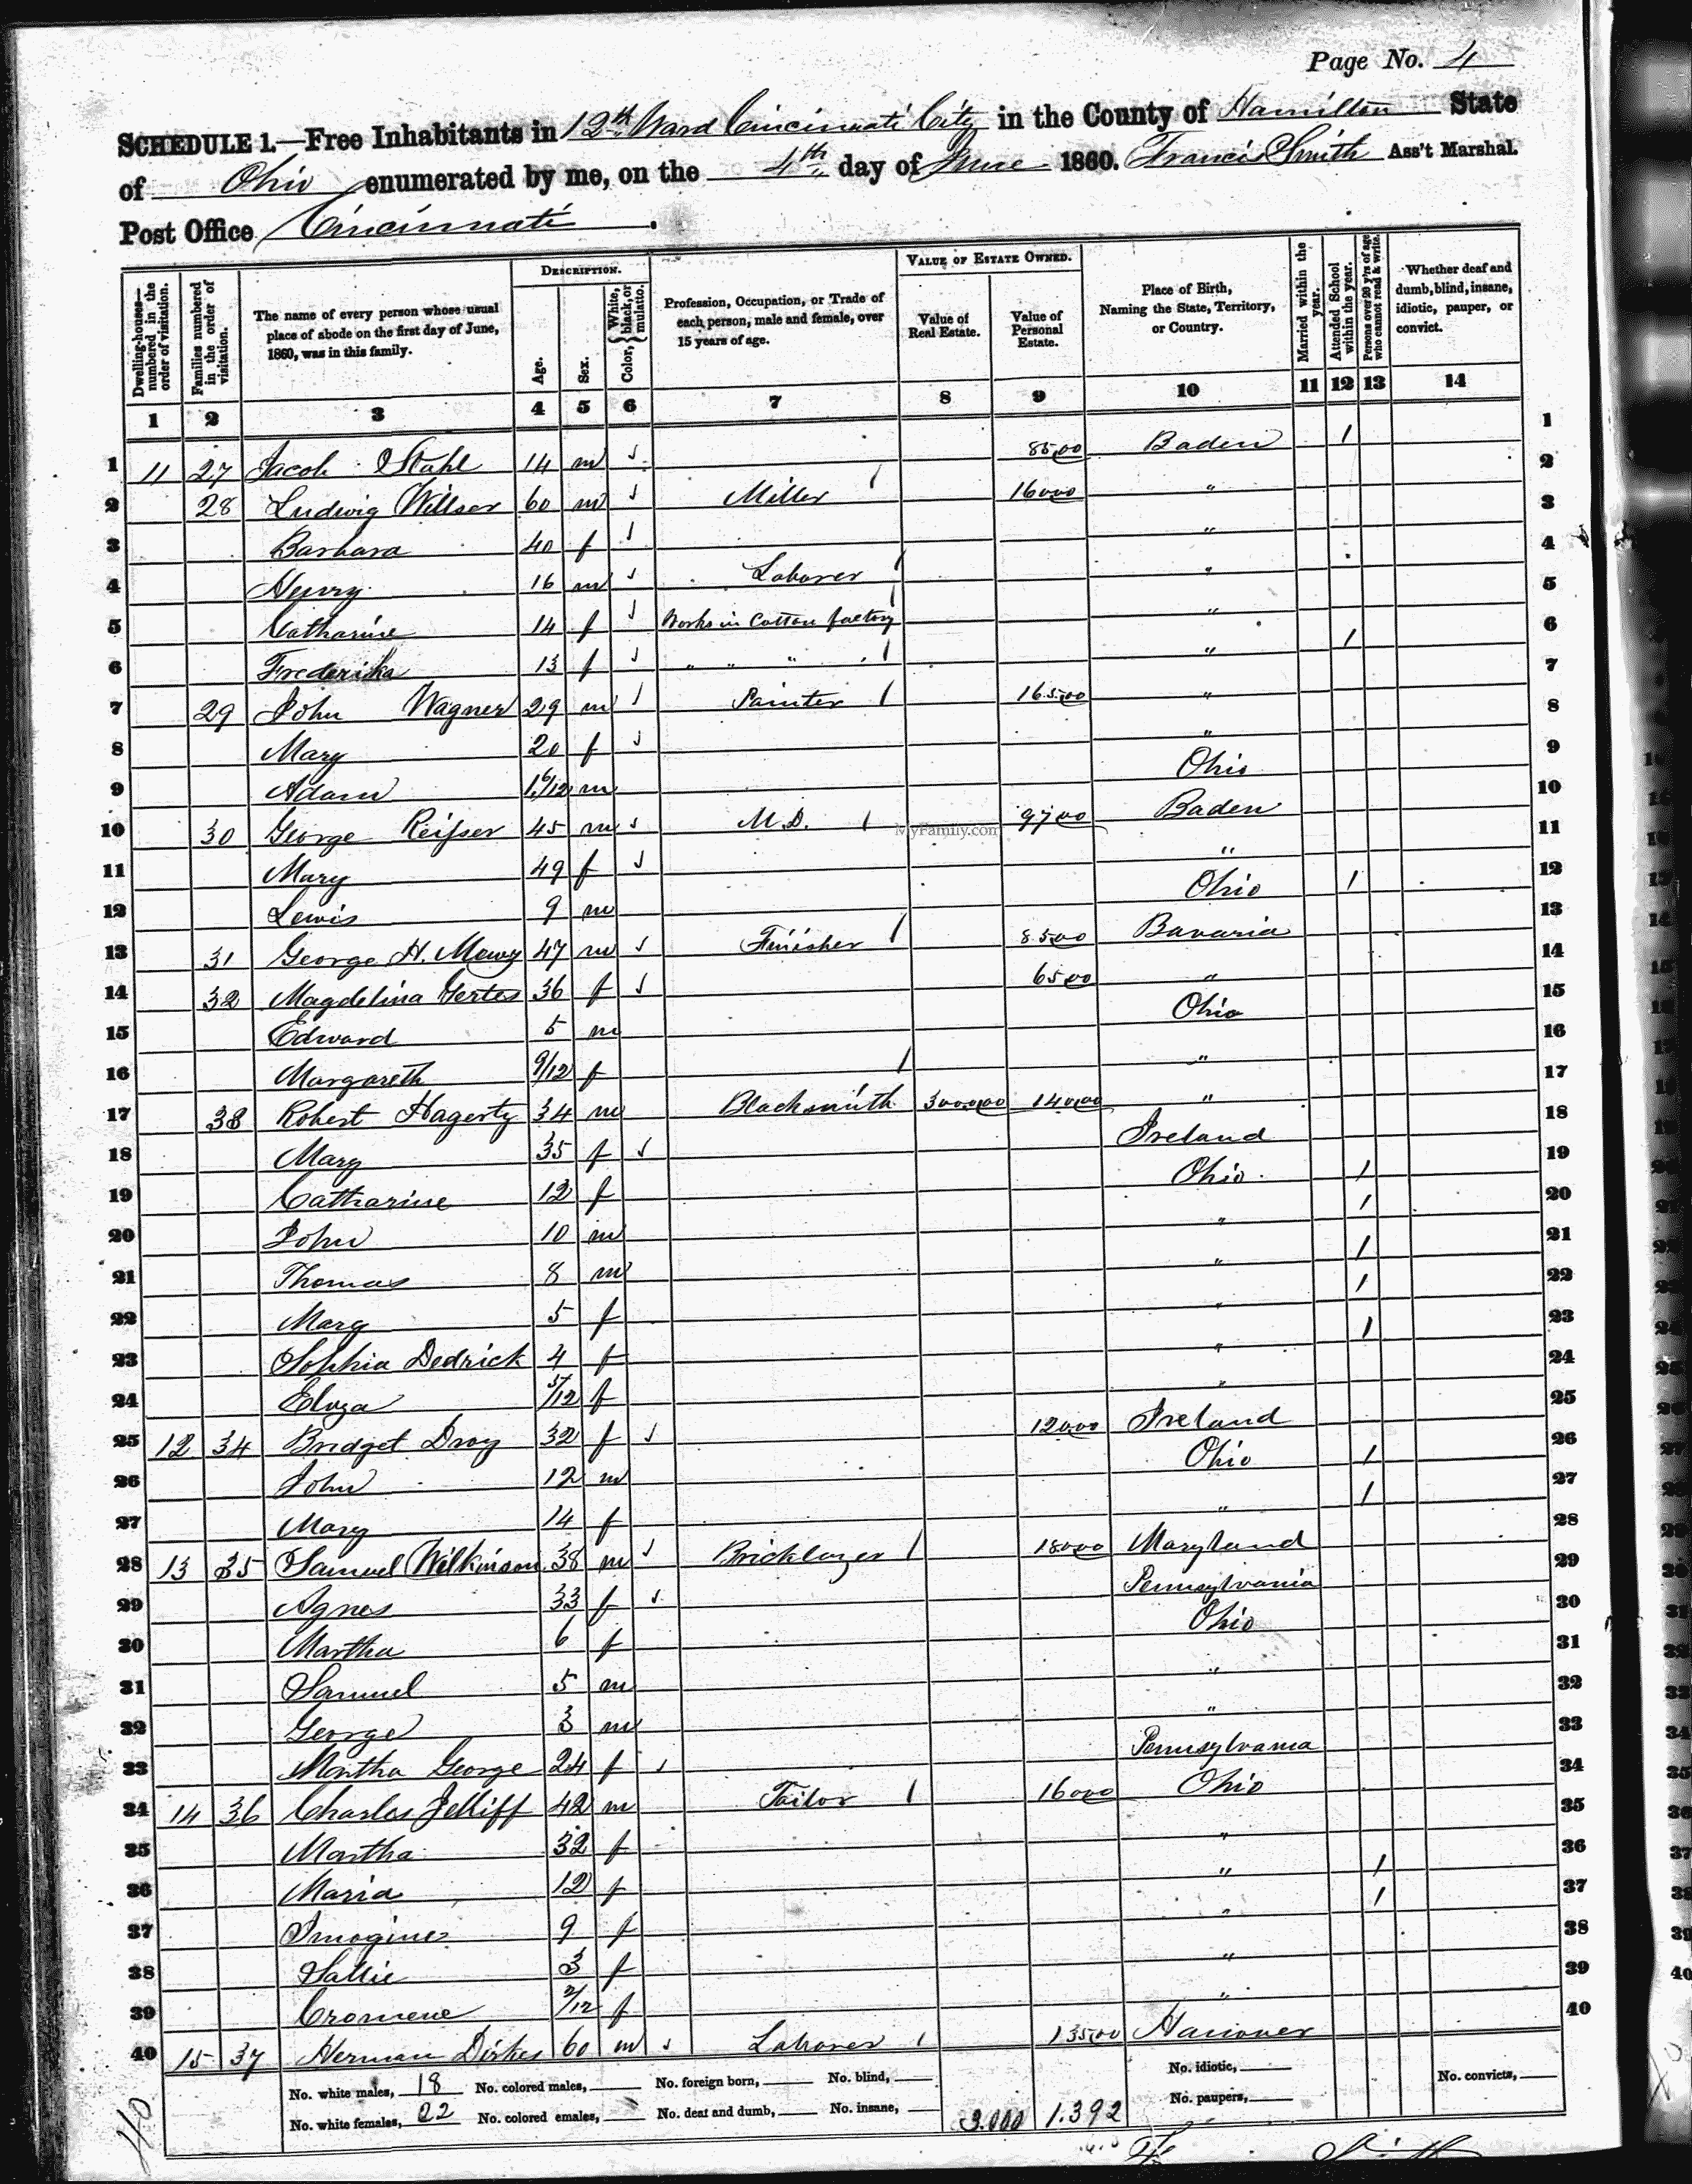 Page No. 4
SCHEDULE 1.—Free Inhabitants in 12th Ward Cincinnati City in the County of Hamilton State
of Ohio enumerated by me, on the 4th day of June 1860. Francis Smith Ass't Marshal.
Post Office Cincinnati.
Dwelling-houses—numbered in the order of visitation. Families numbered in the order of visitation. The name of every person whose usual place of abode on the first day of June, 1860, was in this family. DESCRIPTION. Age. Sex. Color, {White, black, or mulatto. Profession, Occupation, or Trade of each person, male and female, over 15 years of age. VALUE OF ESTATE OWNED. Value of Real Estate. Value of Personal Estate. Place of Birth, Naming the State, Territory, or Country. Married within the year. Attended School within the year. Persons over 20 y'rs of age who cannot read & write. Whether deaf and dumb, blind, insane, idiotic, pauper, or convict.
1 2 3 4 5 6 7 8 9 10 11 12 13 14
1 11 27 Jacob Stahl 14 m 85,00 Baden 1 1
2 28 Ludwig Willser 60 m Miller 1 160,00 " 2
3 Barbara 40 f " 3
4 Henry 16 m Laborer 1 " 4
5 Catharine 14 f Works in Cotton factory 1 " 5
6 Fredericka 13 f " " " 1 " 1 6
7 29 John Wagner 29 m Painter 1 165,00 " 7
8 Mary 20 f " 8
9 Adam 1 6/12 m Ohio 9
10 30 George Reisser 45 m M.D. 1 97,00 Baden 10
MyFamily.com
11 Mary 49 f " 11
12 Lewis 9 m Ohio 1 12
13 31 George H. 47 m Finisher 1 85,00 Bavaria 13
14 32 Magdelina Gertes 36 f 65,00 " 14
15 Edward 5 m Ohio 15
16 Margareth 9/12 f 1 " 16
17 33 Robert Hagerty 34 m Blacksmith 3000,00 140,00 " 17
18 Mary 35 f Ireland 18
19 Catharine 12 f Ohio 1 19
20 John 10 m " 1 20
21 Thomas 8 m " 1 21
22 Mary 5 f " 1 22
23 Sophia Dedrick 4 f " 1 23
24 Eliza 5/12 f " 24
25 12 34 Bridget Dray 32 f 120,00 Ireland 25
26 John 12 m Ohio 1 26
27 Mary 14 f " 1 27
28 13 35 Samuel Wilkinson 38 m Bricklayer 1 180,00 Maryland 28
29 Agnes 33 f Pennsylvania 29
30 Martha 6 f Ohio 30
31 Samuel 5 m " 31
32 George 3 m " 32
33 Martha George 24 f Pennsylvania 33
34 14 36 Charles Jelliff 42 m Tailor 1 160,00 Ohio 34
35 Martha 32 f " 35
36 Maria 12 f " 1 36
37 Imogine 9 f " 1 37
38 Sallie 3 f " 38
39 Cromene 2/12 f " 39
40 15 37 Herman Dirkes 60 m Laborer 1 135,00 Hanover 40
No. white males, 18 No. colored males, No. foreign born, No. blind, No. idiotic, No. convicts,
No. white females, 22 No. colored emales, No. deaf and dumb, No. insane, 3.000 1.392 No. paupers,
40